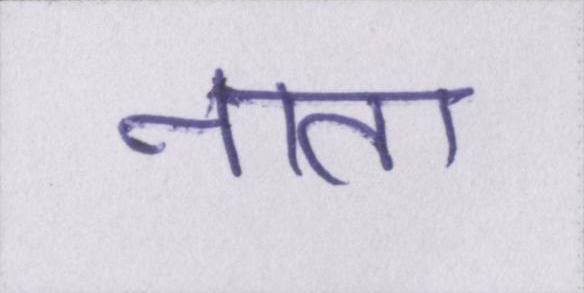 नाता